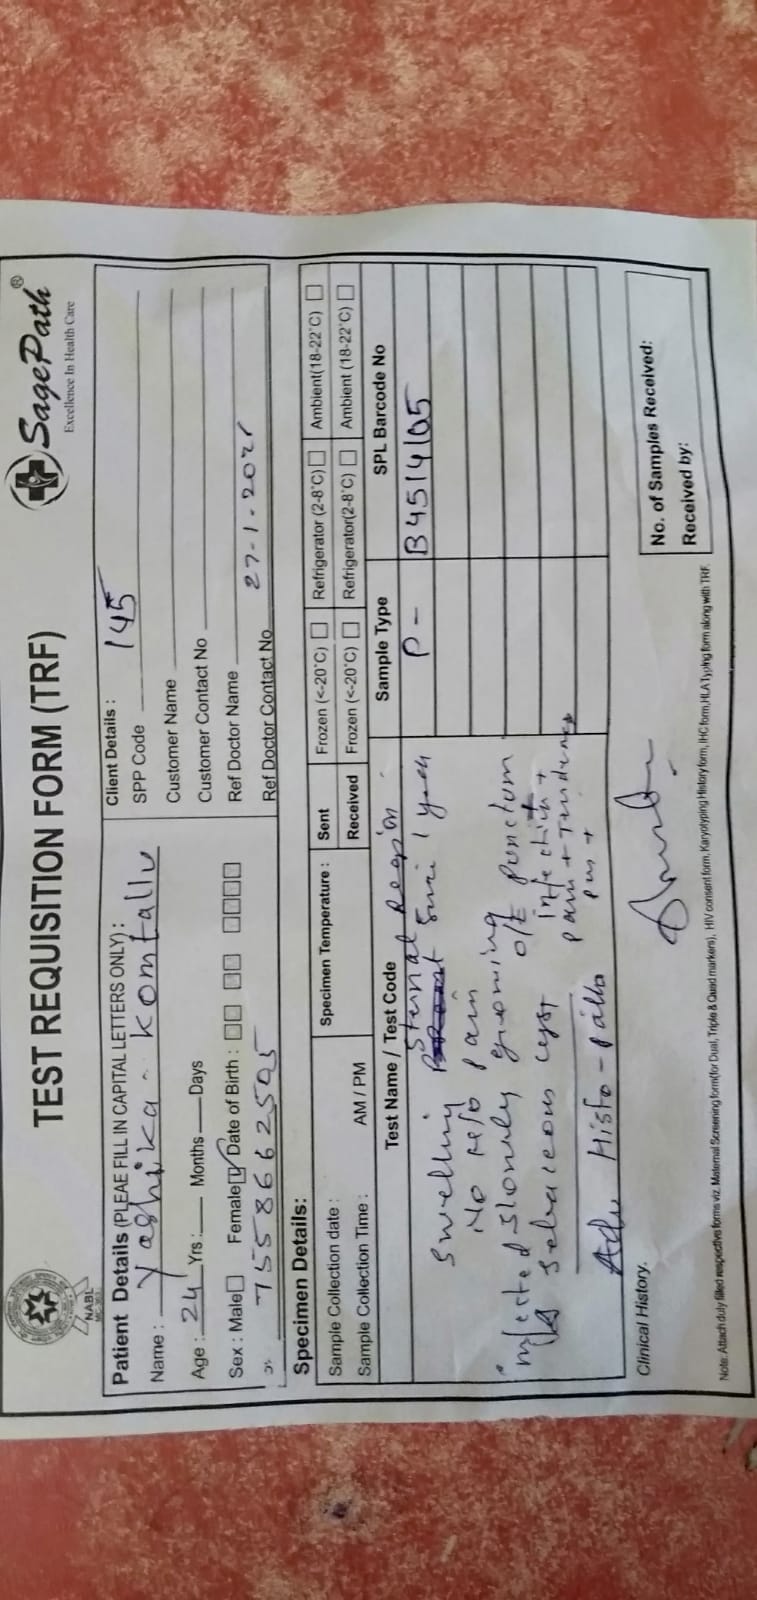 NABL
TEST REQUISITION FORM (TRF)
SagePath®
Excellence In Health Care
Patient Details (PLEAE FILL IN CAPITAL LETTERS ONLY) :
Name : Yashika - Komtallu
Age : 24 Yrs : Months Days
Sex : Male Female Date of Birth :
7558662505
Client Details :
SPP Code 145
Customer Name
Customer Contact No
Ref Doctor Name
Ref Doctor Contact No 27-1-2021
Specimen Details:
Sample Collection date :
Sample Collection Time : AM / PM
Specimen Temperature :
Sent Frozen (<-20°C) Refrigerator (2-8°C) Ambient(18-22°C)
Received Frozen (<-20°C) Refrigerator(2-8°C) Ambient (18-22°C)
Test Name / Test Code Sample Type SPL Barcode No
P - B4514105
Swelling Sternal Region
Since 1 year
No H/o pain
Slowly growing O/E Punctum
infected Sebaceous cyst infection +
pain + Tenderness
pus +
Adv Histo-patho
Clinical History.
No. of Samples Received:
Received by:
Note: Attach duly filled respective forms viz. Maternal Screening form(for Dual, Triple & Quad markers), HIV consent form, Karyotyping History form, IHC form,HLA Typing form along with TRF.